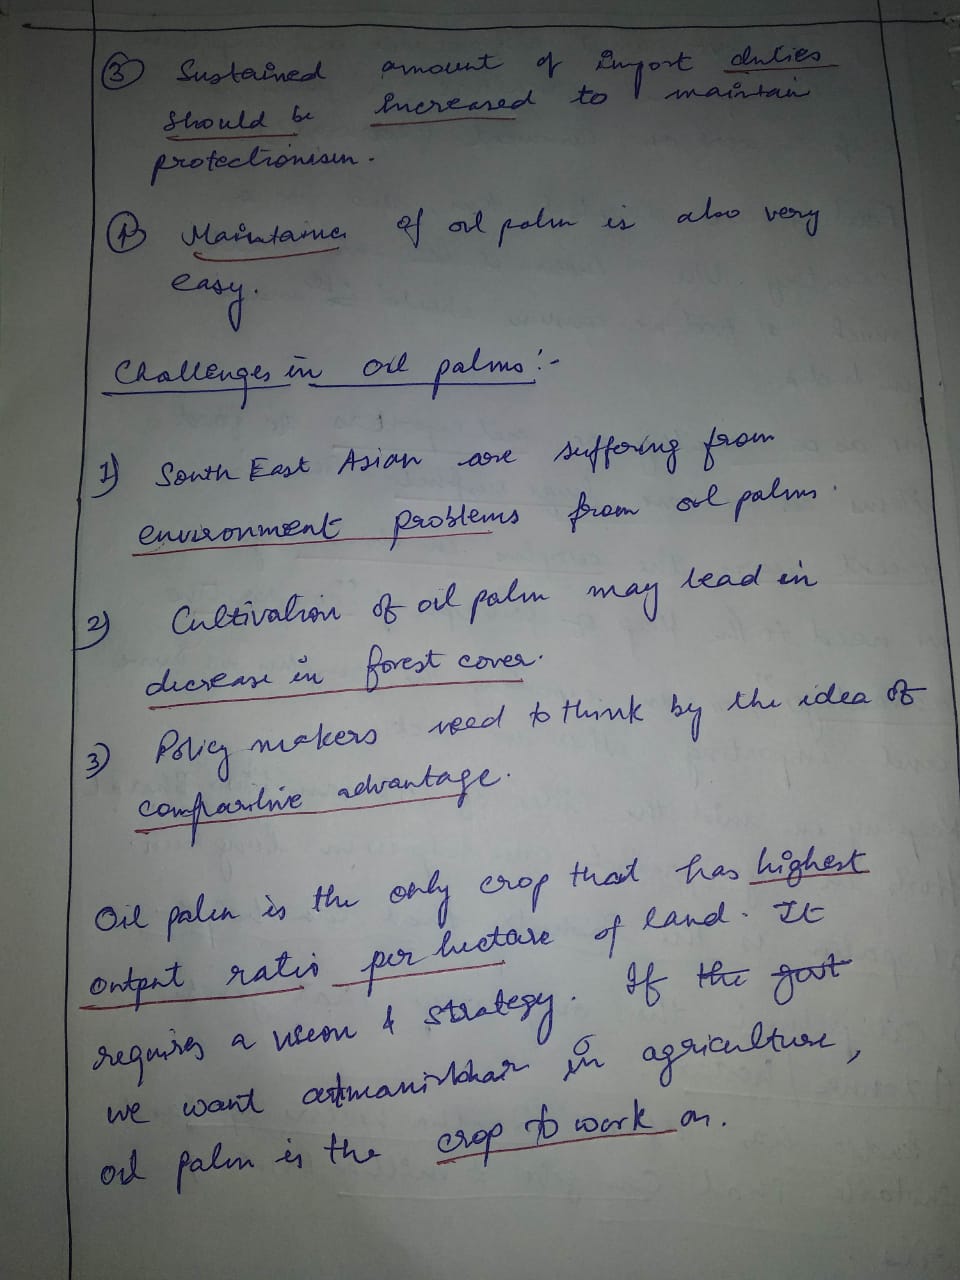 ③ Sustained amount of import duties
should be increased to maintain
protectionism.
④ Maintaince of oil palm is also very
easy.
Challenges in oil palms:-
1) South East Asian are suffering from
environment problems from oil palms.
2) Cultivation of oil palm may lead in
decrease in forest cover.
3) Policy makers need to think by the idea of
comparitive advantage.
Oil palm is the only crop that has highest
output ratio per hectare of land. It
requires a vision & strategy. If the govt
we want atmanirbhar in agriculture,
oil palm is the crop to work on.